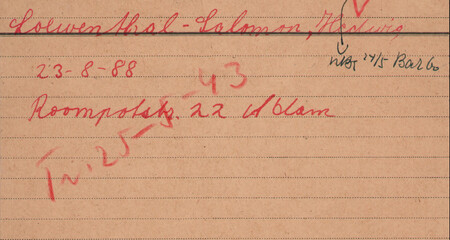 Loewenthal-Salomon, Hedwig
14/5 Barbo
23-8-88
Roompotstr. 22 Adam
Tr. 25-5-43